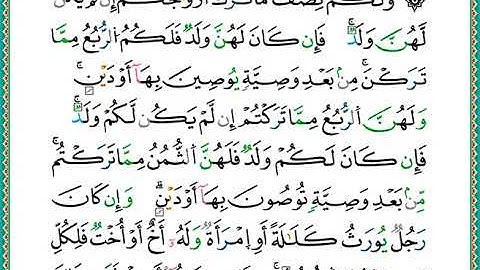 وَلَكُمْ نِصْفُ مَا تَرَكَ أَزْوَٰجُكُمْ إِن لَّمْ يَكُن
لَّهُنَّ وَلَدٌ ۚ فَإِن كَانَ لَهُنَّ وَلَدٌ فَلَكُمُ ٱلرُّبُعُ مِمَّا
تَرَكْنَ ۚ مِنۢ بَعْدِ وَصِيَّةٍ يُوصِينَ بِهَآ أَوْ دَيْنٍ ۚ
وَلَهُنَّ ٱلرُّبُعُ مِمَّا تَرَكْتُمْ إِن لَّمْ يَكُن لَّكُمْ وَلَدٌ ۚ
فَإِن كَانَ لَكُمْ وَلَدٌ فَلَهُنَّ ٱلثُّمُنُ مِمَّا تَرَكْتُم ۚ
مِّنۢ بَعْدِ وَصِيَّةٍ تُوصُونَ بِهَآ أَوْ دَيْنٍ ۗ وَإِن كَانَ
رَجُلٌ يُورَثُ كَلَـٰلَةً أَوِ ٱمْرَأَةٌ وَلَهُۥٓ أَخٌ أَوْ أُخْتٌ فَلِكُلِّ